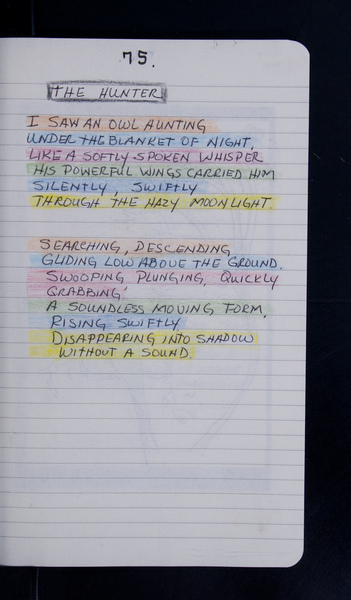 75.
THE HUNTER
I SAW AN OWL HUNTING
UNDER THE BLANKET OF NIGHT,
LIKE A SOFTLY-SPOKEN WHISPER
HIS POWERFUL WINGS CARRIED HIM
SILENTLY, SWIFTLY
THROUGH THE HAZY MOONLIGHT.
SEARCHING, DESCENDING
GLIDING LOW ABOVE THE GROUND.
SWOOPING PLUNGING, QUICKLY
GRABBING'
A SOUNDLESS MOVING FORM,
RISING SWIFTLY
DISAPPEARING INTO SHADOW
WITHOUT A SOUND.